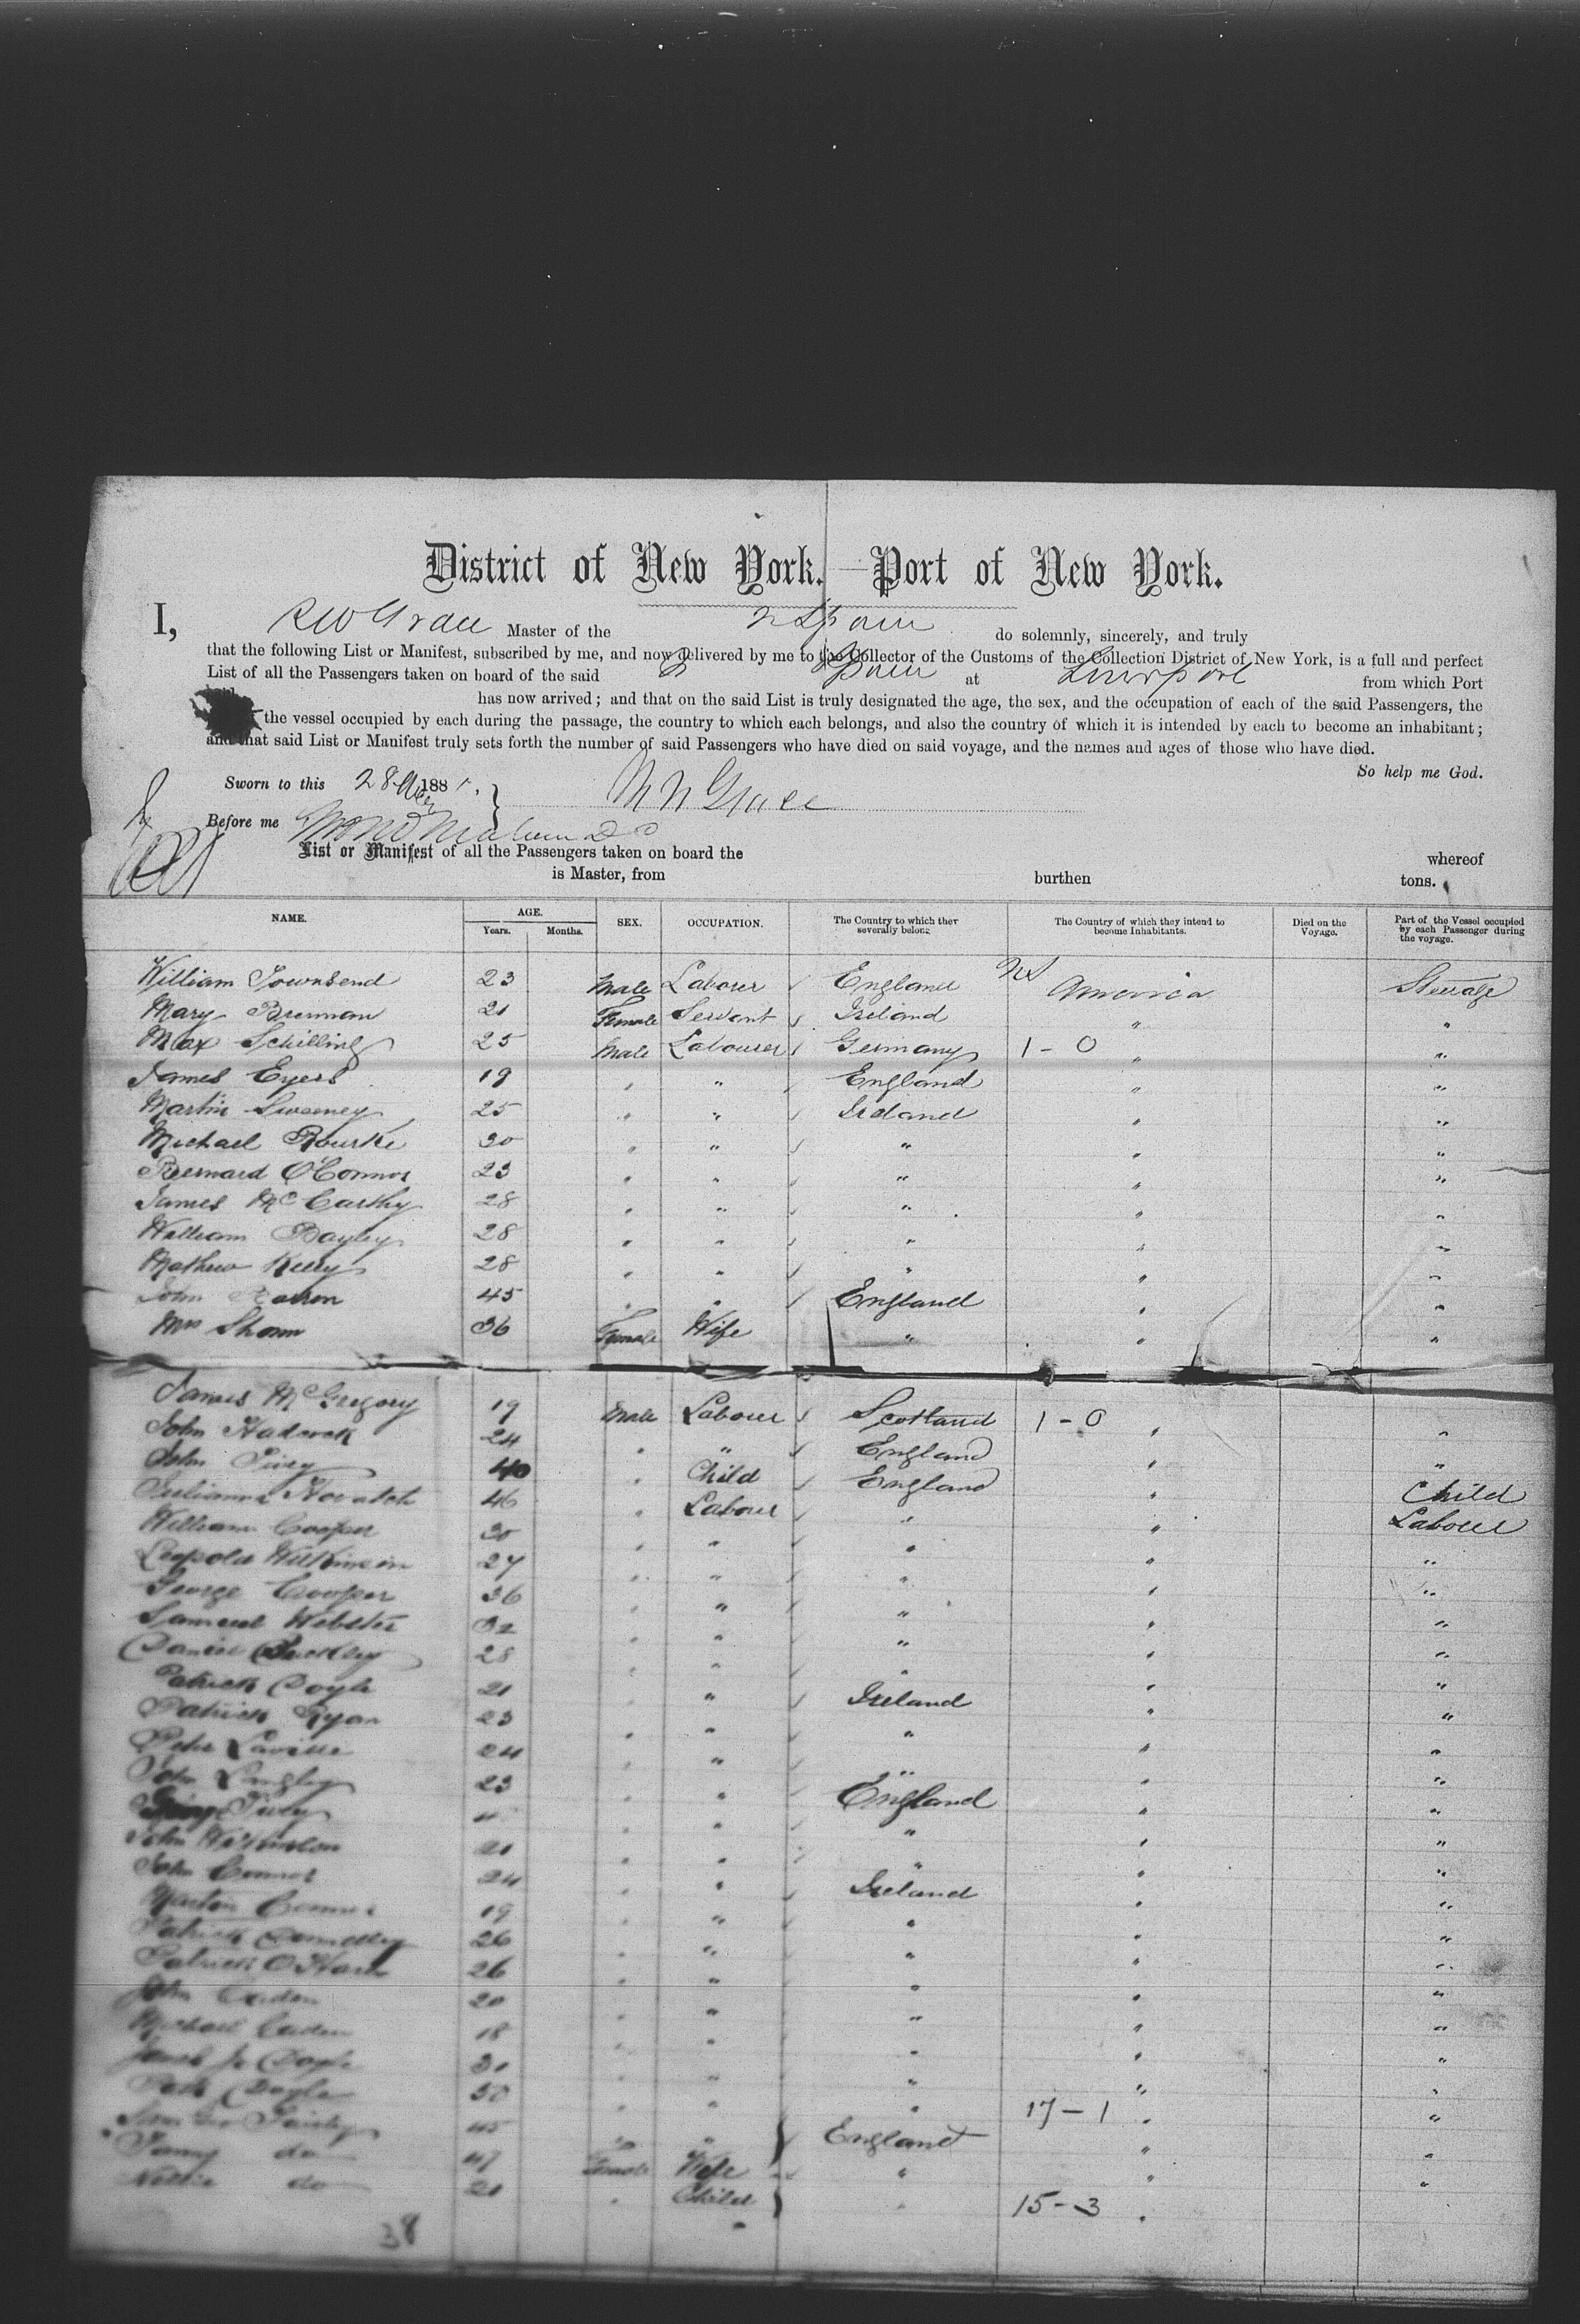 District of New York.—Port of New York.
I, R W Grace Master of the SS Spain do solemnly, sincerely, and truly
that the following List or Manifest, subscribed by me, and now delivered by me to the Collector of the Customs of the Collection District of New York, is a full and perfect
List of all the Passengers taken on board of the said Spain at Liverpool from which Port
has now arrived; and that on the said List is truly designated the age, the sex, and the occupation of each of the said Passengers, the
the vessel occupied by each during the passage, the country to which each belongs, and also the country of which it is intended by each to become an inhabitant;
and that said List or Manifest truly sets forth the number of said Passengers who have died on said voyage, and the names and ages of those who have died.
So help me God.
Sworn to this 28 188 Grace
Before me
List or Manifest of all the Passengers taken on board the whereof
is Master, from burthen tons.
NAME. AGE. Years. Months. SEX. OCCUPATION. The Country to which they severally belong The Country of which they intend to become Inhabitants. Died on the Voyage. Part of the Vessel occupied by each Passenger during the voyage.
William Townsend 23 Male Laborer England US America Steerage
Mary Brennan 21 Female Servant Ireland " "
Max Schilling 25 Male Labourer Germany 1 - 0 " "
James Eyers 19 " " England " "
Martin Sweeney 25 " " Ireland " "
Michael Rourke 30 " " " " "
Bernard O'Connor 23 " " " " "
James McCarthy 28 " " " " "
William Bayley 28 " " " " "
Mathew Kelly 28 " " " " "
John 45 " " England " "
Mrs 36 Female Wife " " "
James McGregory 19 Male Laborer Scotland 1 - 0 " "
John 24 " " England " "
John 40 " Child England " Child
46 " Laborer " " Laborer
William Cooper 30 " " " " "
Leopold Wilkinson 27 " " " " "
George Cooper 36 " " " " "
Samuel Webster 32 " " " " "
Daniel Buckley 28 " " " " "
Patrick Doyle 21 " " Ireland " "
Patrick Ryan 23 " " " " "
Peter 24 " " " " "
John Langley 23 " " England " "
" " " " "
John 21 " " " " "
John Connor 24 " " Ireland " "
Martin Connor 19 " " " " "
Patrick 26 " " " " "
Patrick O'Hara 26 " " " " "
John 20 " " " " "
Michael 18 " " " " "
James Doyle 30 " " " " "
Doyle 50 " " " 17 - 1 " "
45 " " England " "
Fanny do 47 Female Wife " " "
Nellie do 21 " Child " 15 - 3 "
38